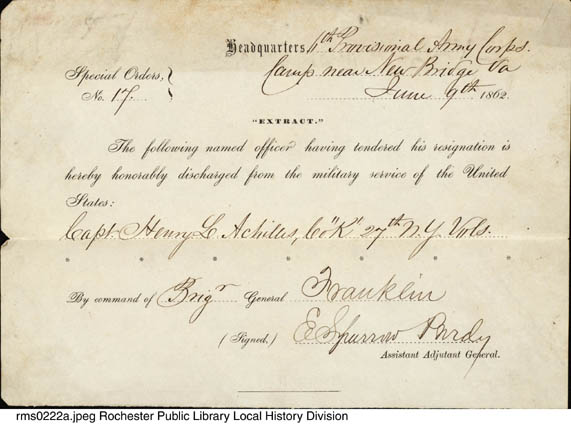 Headquarters 6th Provisional Army Corps.
Camp near New Bridge Va
Special Orders,
No. 17.
June 9th 1862.
"EXTRACT."
The following named officer having tendered his resignation is
hereby honorably discharged from the military service of the United
States:
Capt. Henry L. Achilles, Co "K" 27th N.Y. Vols.
* * * * * * * *
By command of Brigr General Franklin
(Signed.) E Sparrow Purdy
Assistant Adjutant General.
rms0222a.jpeg Rochester Public Library Local History Division